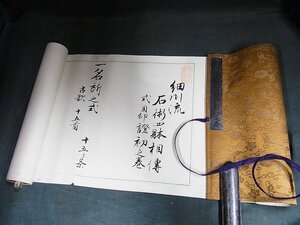 細川流
石術四躰相傳
式目印證初之巻
一名所之式
法歌十五首
十五条